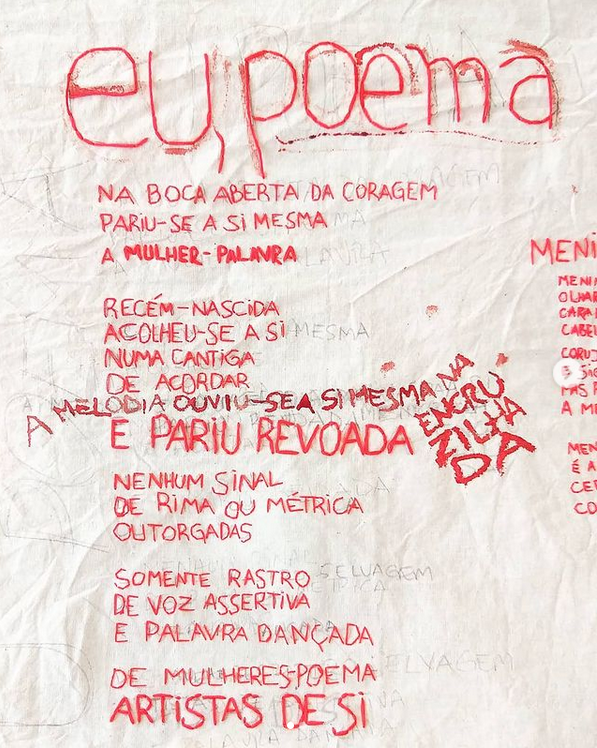 eu, poema
NA BOCA ABERTA DA CORAGEM
PARIU-SE A SI MESMA
A MULHER-PALAVRA
RECÉM-NASCIDA
ACOLHEU-SE A SI MESMA
NUMA CANTIGA
DE ACORDAR
A MELODIA OUVIU-SE A SI MESMA NA
ENCRU
ZILHA
DA
E PARIU REVOADA
NENHUM SINAL
DE RIMA OU MÉTRICA
OUTORGADAS
SOMENTE RASTRO SELVAGEM
DE VOZ ASSERTIVA
E PALAVRA DANÇADA
DE MULHERES-POEMA
ARTISTAS DE SI